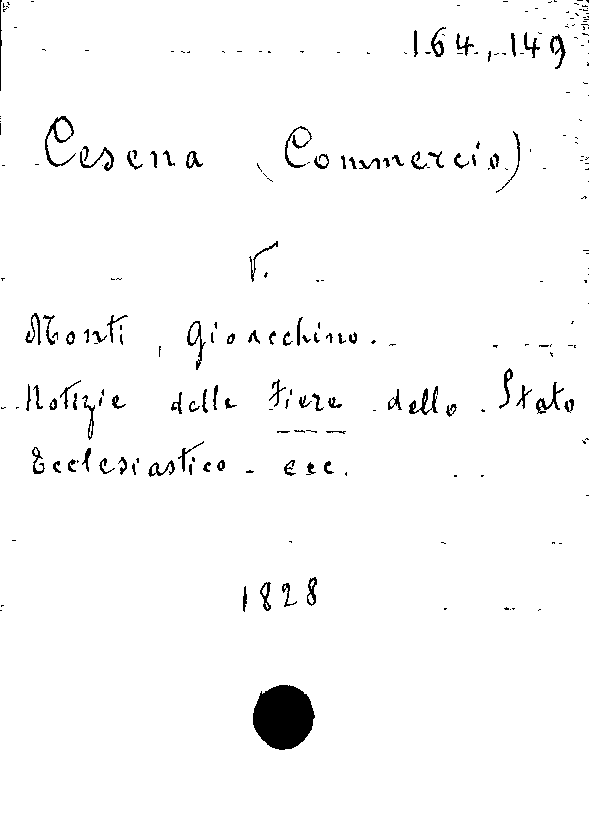 164,149
Cesena (Commercio)
V.
Monti, Gioacchino.
Notizie delle Fiere dello Stato
Ecclesiastico - ecc.
1828